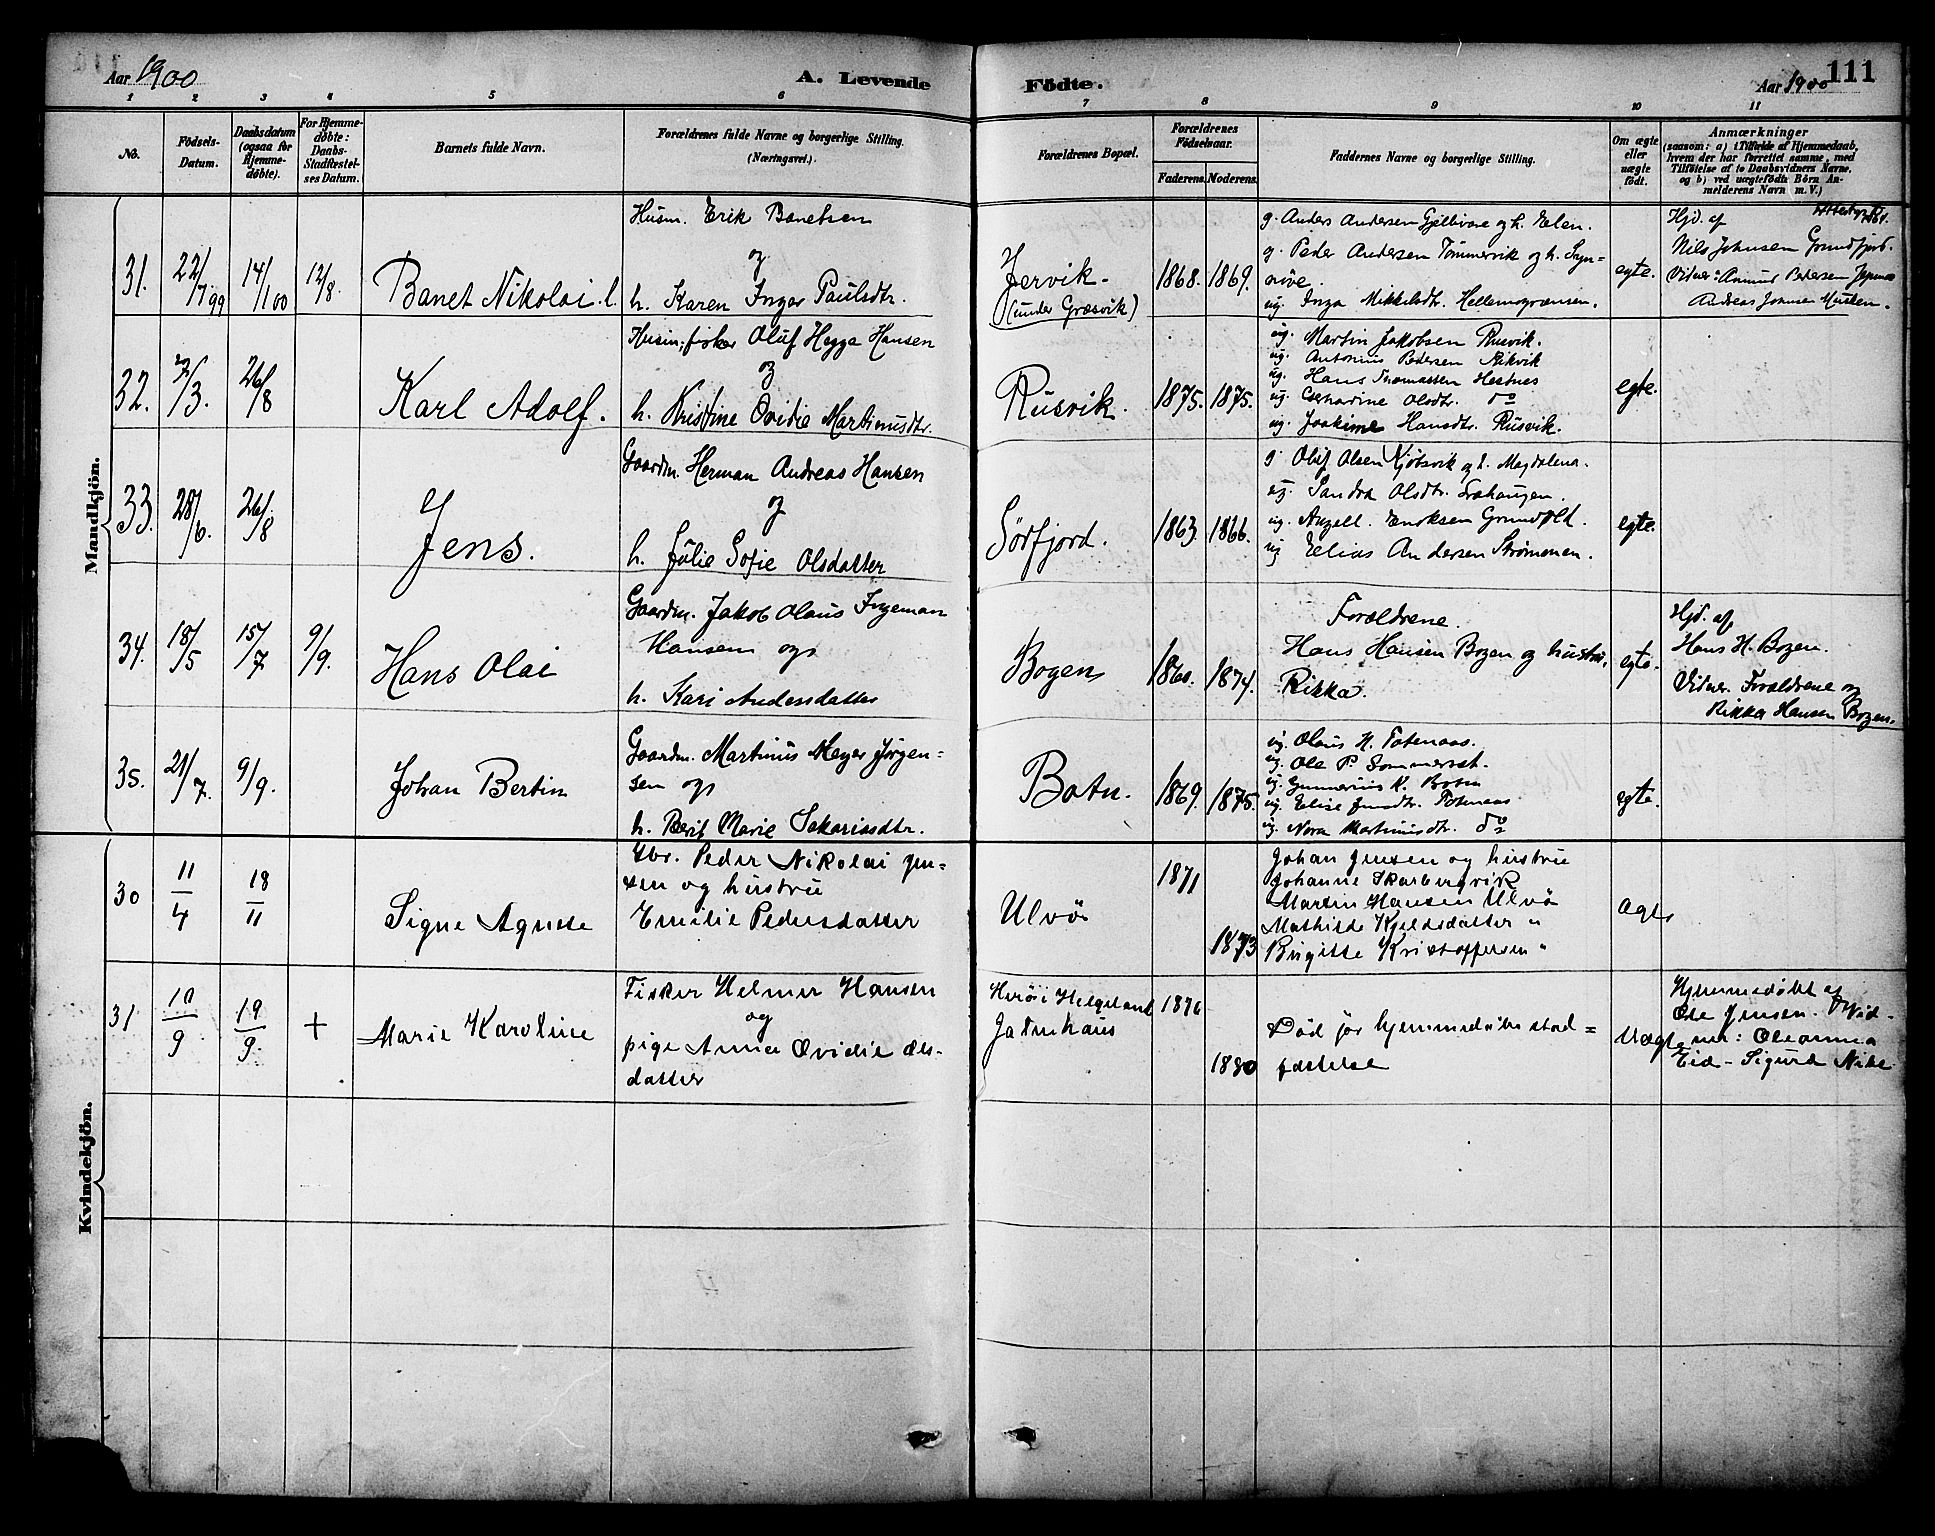 Aar 1900
A. Levende
Födte.
Aar 1900
111
1 2 3 4 5 6 7 8 9 10 11
No.
Födsels-
Datum.
Daabsdatum
(ogsaa for
Hjemme-
døbte).
For Hjemme-
døbte:
Daabs-
Stadfæstel-
ses Datum.
Barnets fulde Navn.
Forældrenes fulde Navne og borgerlige Stilling.
(Næringsvei.)
Forældrenes Bopæl.
Forældrenes
Födselsaar.
Faderens.
Moderens.
Faddernes Navne og borgerlige Stilling.
Om ægte
eller
uægte
født.
Anmærkninger
(saasom: a) i Tilfælde af Hjemmedaab,
hvem der har forrettet samme, med
Tilføielse af to Daabsvidners Navne,
og b) ved uægtefødte Börn An-
melderens Navn m. V.)
Mandkjön.
31.
22/7 99
14/1 00
12/8.
Banet Nikolai.
Husm. Erik Banetsen
og
h. Karen Inger Paulsdtr.
Jervik.
(under Græsvik)
1868.
1869.
g. Anders Andersen Gjelbvare og h. Elen.
g. Peder Andersen Tömmervik og h. Syn-
növe.
ug. Inga Mikkelsdtr. Hellemogrænsen.
egte.
Hjd. af
Nils Johnsen Grundfjord.
Vidner: Anmund Pedersen
Andreas Johnsen Musken.
32.
2/3.
26/8
Karl Adolf.
Husm., fisker Oluf Hegge Hansen
og
h. Kristine Ovidie Martinusdtr.
Rusvik.
1875.
1875.
ug. Martin Jakobsen Rusvik.
ug. Antonius Pedersen Kikvik
ug. Hans Thomassen Hestnes
ug. Catharine Olsdtr. do
ug. Joakime Hansdtr. Rusvik.
egte.
33.
28/6.
26/8
Jens.
Gaardm. Herman Andreas Hansen
og
h. Julie Sofie Olsdatter
Sörfjord.
1863.
1866.
g. Oluf Olsen Kjöbsvik og h. Magdalena.
ug. Sandra Olsdtr.
ug. Anzell. Eriksen
ug Elias Andersen Strømmen.
egte.
34.
18/5
15/7
9/9.
Hans Olai
Gaardm. Jakob Olaus Ingeman
Hansen og
h. Kari Andersdatter
Bogen
1860.
1874.
Forældrene.
Hans Hansen Bogen og hustru,
Rikka.
egte.
Hjd. af
Hans H. Bogen.
Vidner. Forældrene og
Rikka Hansen Bogen.
35.
21/7.
9/9.
Johan Bertin
Gaardm. Martinus Meyer Jørgen-
sen og
h. Berit Marie Sakariasdtr.
Botn.
1869.
1875.
ug. Olaus H. Fotenaas.
ug. Ole P. Sommerset.
ug. Gunnerius K. Botn
ug. Elise Jensdtr. Fotenaas.
ug. Nora Martinusdtr. do
egte.
Kvindekjön.
30
11/4
18/11
Signe Agnete
Gbr. Peder Nikolai Jen-
sen og hustru
Emilie Pedersdatter
Ulvö
1871
1873
Johan Jensen og hustru
Johanne Skarbergvik
Martin Hansen Ulvö
Mathilde Kjeldsdatter "
Birgitte Kristoffersen "
Ægte
31
10/9
19/9.
+
Marie Karoline
Fisker Helmer Hansen
og
pige Anna Ovidie Ols-
datter
Herö i Helgeland
1876
1880
Död før hjemmedaabs stad=
fæstelse
Uægte
Hjemmedøbt af
Ole Jensen. Vid-
ner: Oleanna
Eid - Sigurd